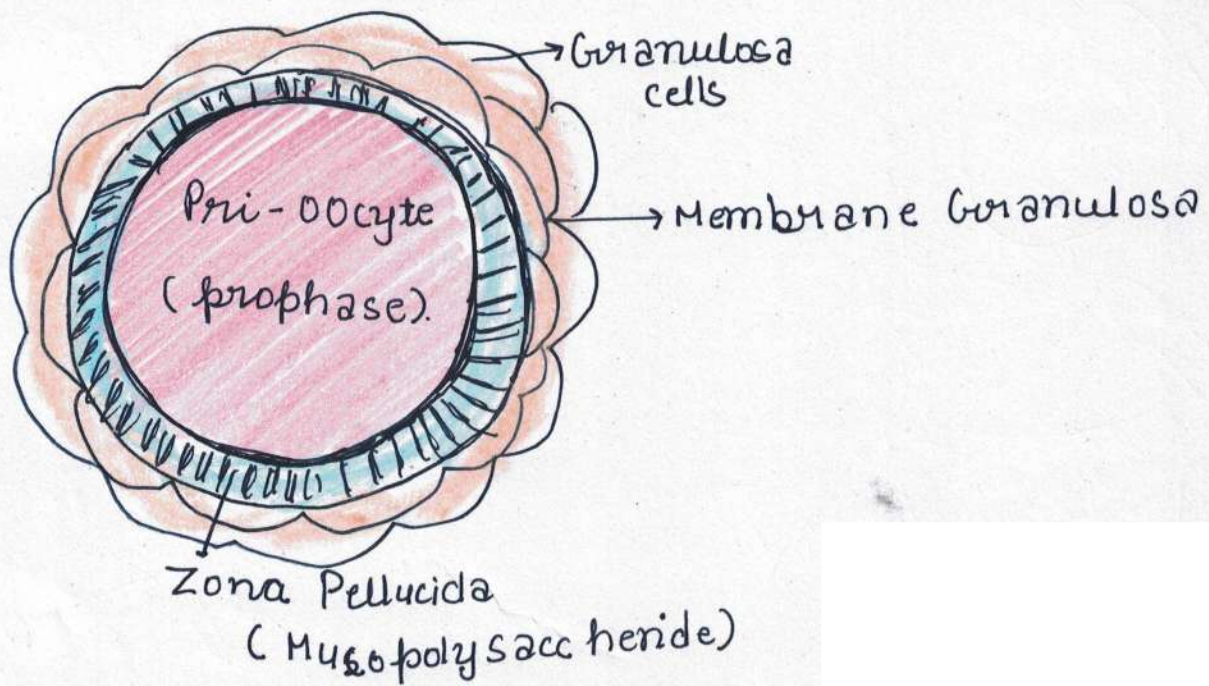 Granulosa
cells
Pri-oocyte
(prophase).
Membrane Granulosa
Zona Pellucida
(Mucopolysaccheride)